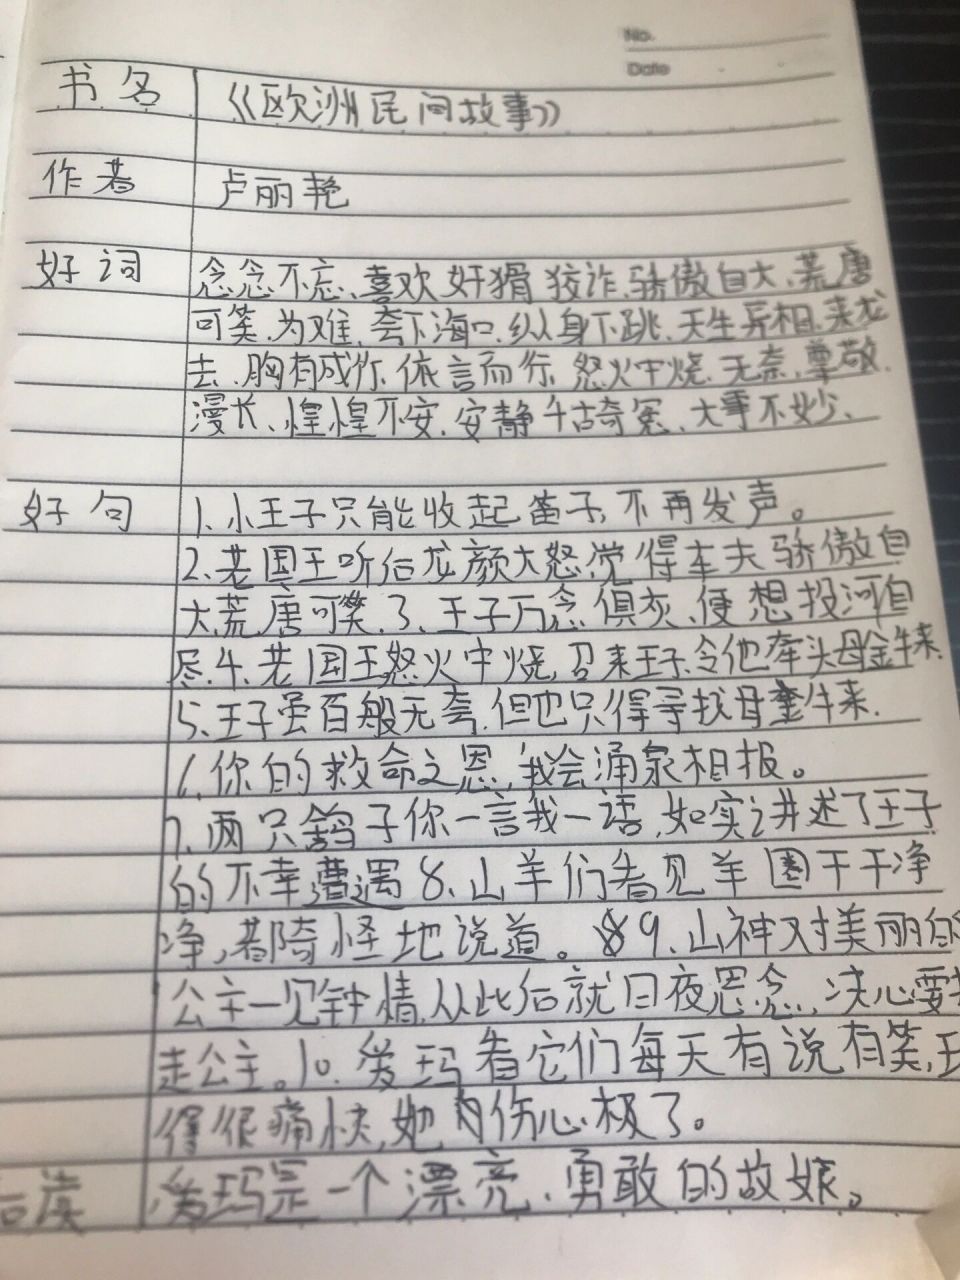 No.
Date
书名 《欧洲民间故事》
作者 卢丽艳
好词 念念不忘、喜欢 奸猾 狡诈、骄傲自大、荒唐
可笑、为难、夸下海口、纵身下跳、天生异相、来龙
去、胸有成竹、依言而行、怒火中烧、无奈、尊敬、
漫长、惶惶不安、安静 千古奇冤、大事不妙、
好句 1、小王子只能收起笛子,不再发声。
2、老国王听后龙颜大怒,觉得车夫骄傲自
大,荒唐可笑.3、王子万念俱灰、便想投河自
尽.4、老国王怒火中烧,召来王子,令他牵头母金牛来.
5、王子虽百般无夸,但也只得寻找母金牛来.
6、你的救命之恩,我会涌泉相报。
7、两只鸽子你一言我一语,如实讲述了王子
的不幸遭遇 8、山羊们看见羊圈干干净
净,都奇怪地说道。9、山神对美丽的
公主一见钟情,从此后就日夜思念,决心要
走公主。10、爱玛看它们每天有说有笑,
得很痛快,她 伤心极了。
后读 爱玛是一个漂亮、勇敢的故娘。